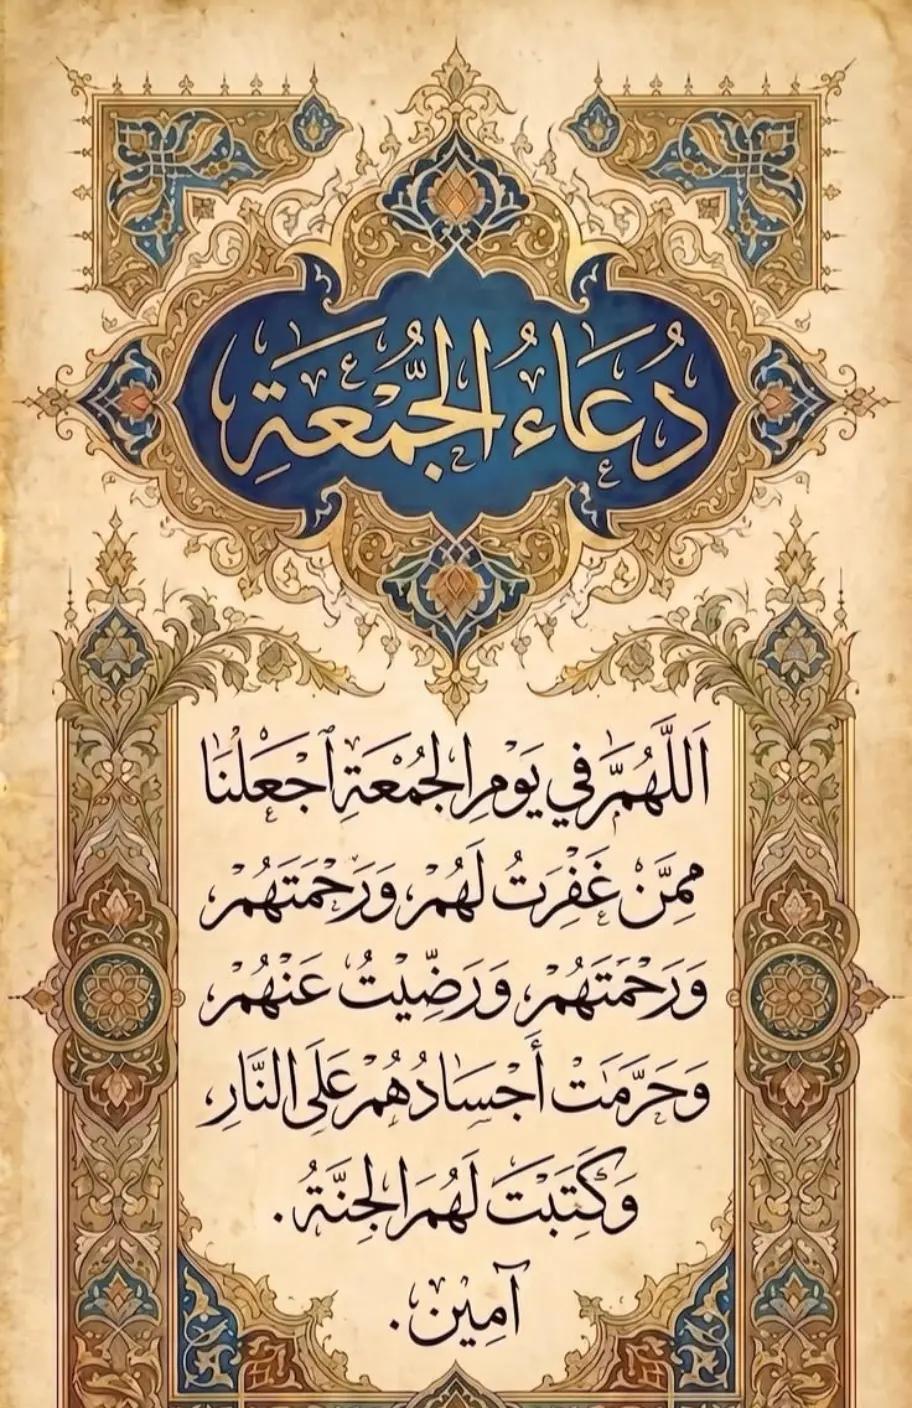 دُعَاءُ الجُمُعَةِ
اَللَّهُمَّ فِي يَوْمِ الجُمُعَةِ اجْعَلْنَا
مِمَّنْ غَفَرْتَ لَهُمْ، وَرَحْمَتَهُمْ
وَرَحْمَتَهُمْ، وَرَضِّيْتُ عَنْهُمْ
وَحَرَّمَتْ أَجْسَادُهُمْ عَلَى النَّارِ،
وَكَتَبْتَ لَهُمَ الجِنَّةُ.
آمِيْن.